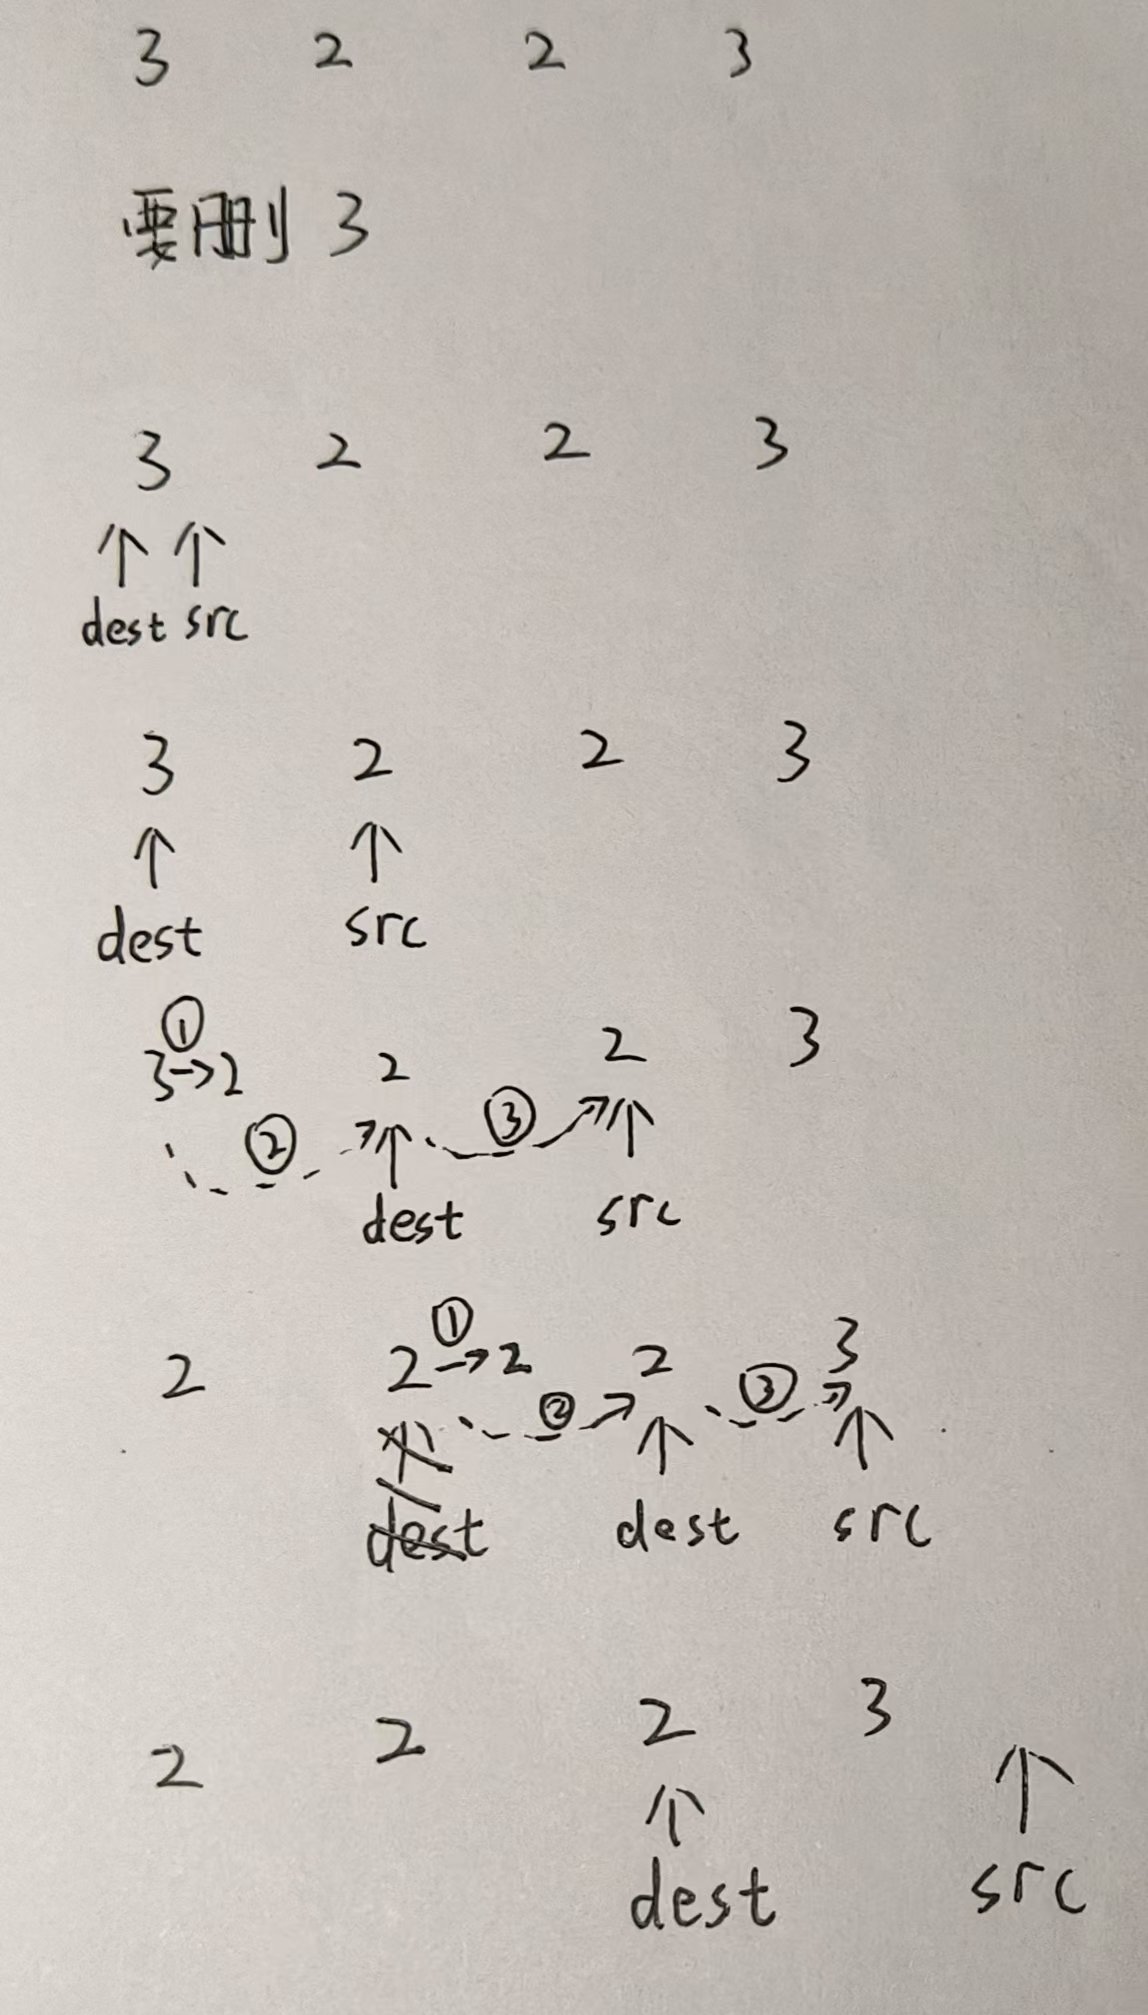 3 2 2 3
要删 3
3 2 2 3
↑ ↑
dest src
3 2 2 3
↑ ↑
dest src
①
3→2 2 2 3
② ↑ ③ ↑
dest src
①
2 2→2 2 3
② ↑ ③ ↑
dest dest src
2 2 2 3
↑ ↑
dest src